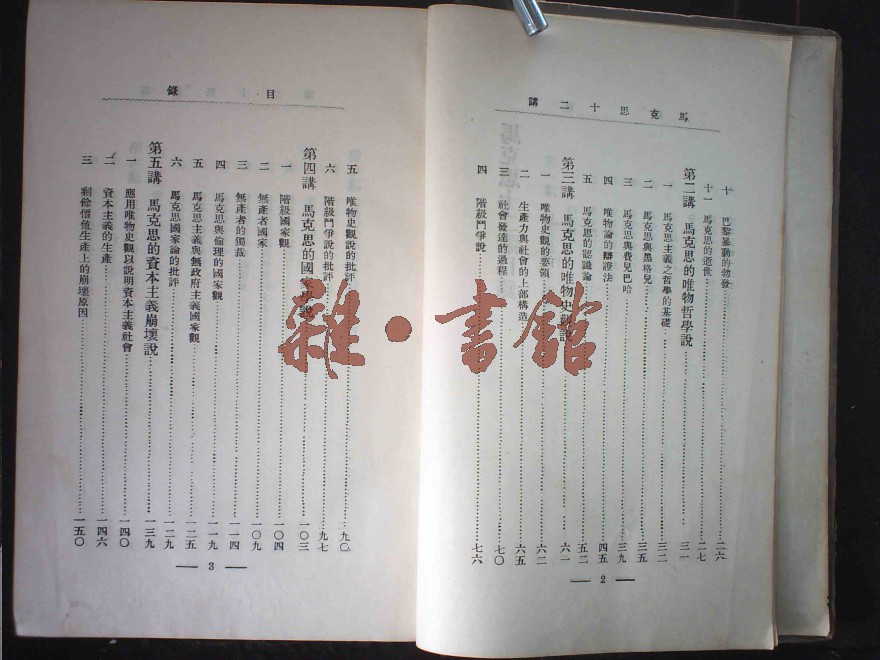 馬克思十二講
十 巴黎暴動的勃發 二六
十一 馬克思的逝世 二七
第二講 馬克思的唯物哲學說 三一
一 馬克思主義之哲學的基礎 三二
二 馬克思與黑格兒 三五
三 馬克思與費兒巴哈 三九
四 唯物論的辯證法 四五
五 馬克思的認識論 五二
第三講 馬克思的唯物史觀說 六一
一 唯物史觀的要領 六二
二 生產力與社會的上部構造 六五
三 社會發達的過程 七〇
四 階級鬥爭說 七六
— 2 —
目錄
五 唯物史觀說的批評 九〇
六 階級鬥爭說的批評 九七
第四講 馬克思的國家學說 一〇三
一 階級國家觀 一〇四
二 無產者國家 一〇九
三 無產者的獨裁 一一四
四 馬克思與倫理的國家觀 一一九
五 馬克思主義與無政府主義國家觀 一二五
六 馬克思國家論的批評 一二九
第五講 馬克思的資本主義崩壞說 一三九
一 應用唯物史觀以說明資本主義社會 一四〇
二 資本主義的生產 一四六
三 剩餘價值生產上的崩壞原因 一五〇
— 3 —
雜·書館